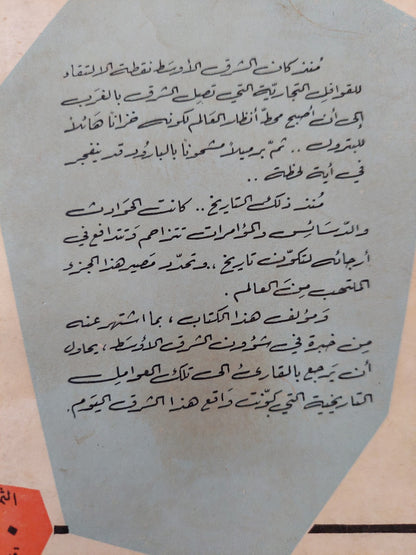 مُنذ كان الشرق الأوسَط نقطة الالتقاء
للقوافل التجاريّة التي تصِل الشرق بالغرَب
إلى أن أصبح محطّ أنظار العالم لكونه خزانًا هائلاً
للبترول .. ثمّ برميلاً مشحونًا بالبارُود قد ينفجر
في أية لحظة ..
مُنذ ذلك التاريخ .. كانت الحَوادث
والدّسَائِس والمؤامرات تتزاحم وَتتدافع في
أرجائه لتكوّن تاريخ ،. وتحدّد مَصير هذا الجزء
الملتهب مِن العالم .
وَمؤلف هذا الكتاب ، بما اشتهر عنه
مِن خبرة في شؤوون الشرق الأوسَط ، يحاول
أن يَرجع بالقارئ الى تلك العوامِل
التاريخية التي كوّنت وَاقع هذا الشرق اليوَم .